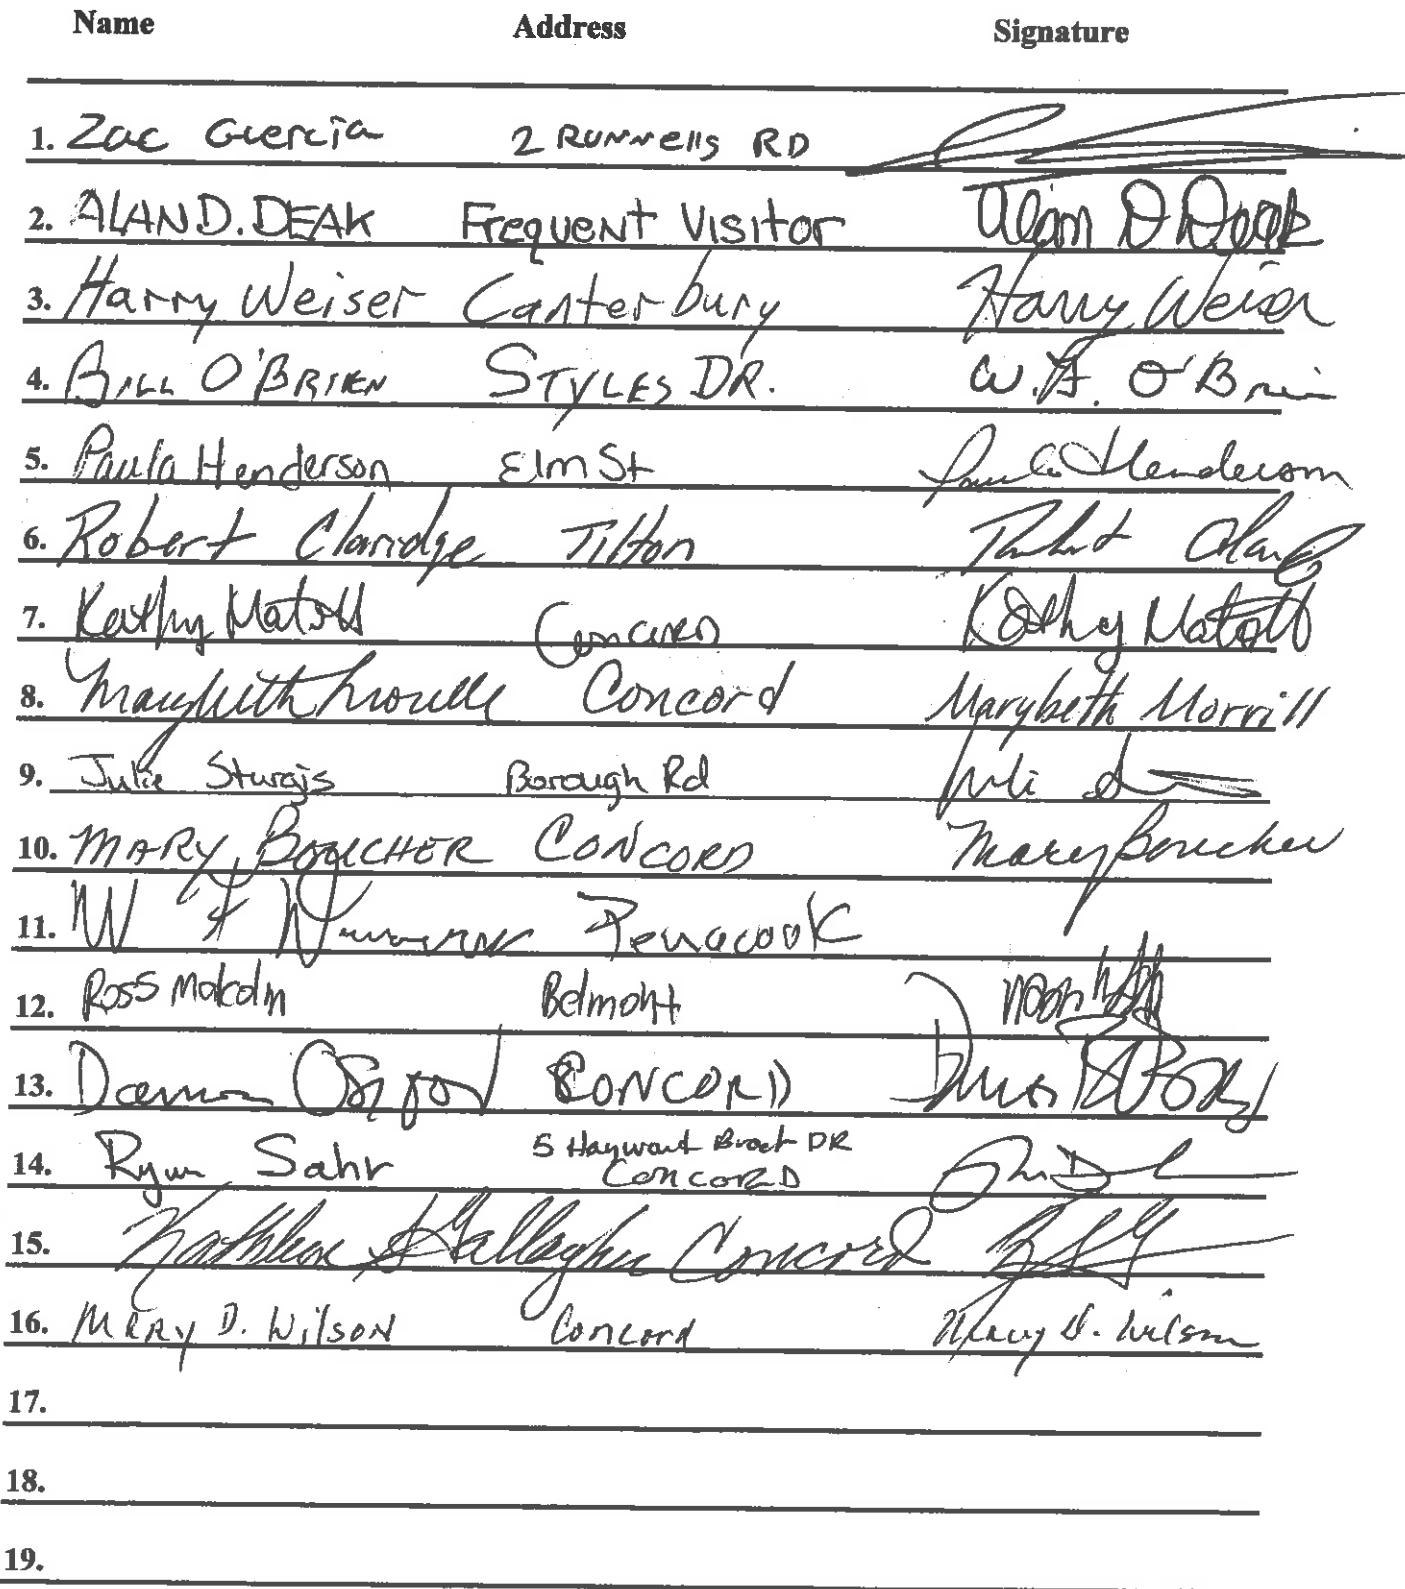 Name Address Signature
1. Zac Guercia 2 Runnells RD
2. ALAN D. DEAK Frequent Visitor Alan D Deak
3. Harry Weiser Canterbury Harry Weiser
4. BILL O'BRIEN STYLES DR. W.F. O'Brien
5. Paula Henderson Elm St Paula Henderson
6. Robert Claridge Tilton
7. Kathy Matott Concord Kathy Matott
8. Marybeth Morrill Concord Marybeth Morrill
9. Julie Sturgis Borough Rd
10. MARY BOUCHER CONCORD Mary Boucher
11. W Penacook
12. Ross Malcolm Belmont
13. Damon Osgood CONCORD
14. Ryan Sahr 5 Hayward Brook DR
CONCORD
15. Kathleen Gallagher Concord
16. MARY D. WILSON Concord Mary D. Wilson
17.
18.
19.